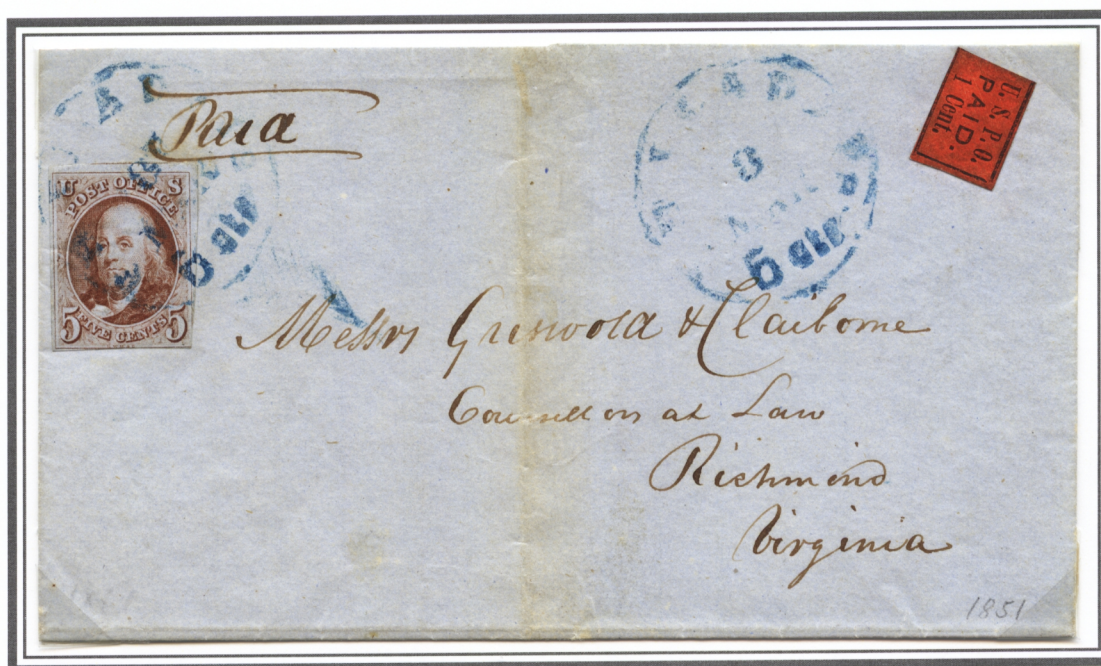 Paid
U. S. P. O.
PAID.
1 Cent.
U S
POST OFFICE
5 5
FIVE CENTS
5 cts
8
5 cts
Messrs Griswold & Claiborne
Counsellors at Law
Richmond
Virginia
1851